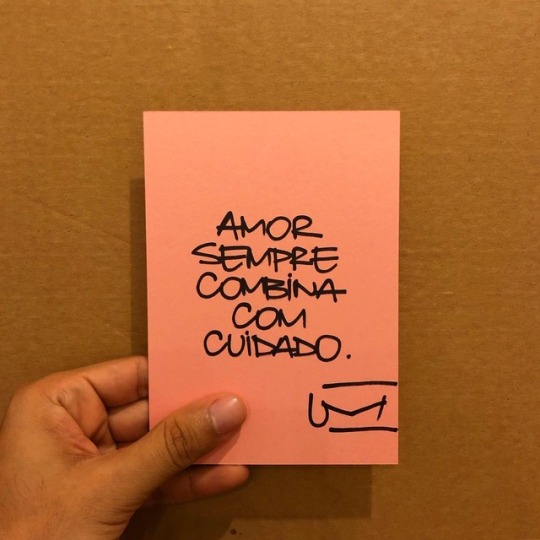 AMOR
SEMPRE
COMBINA
COM
CUIDADO.